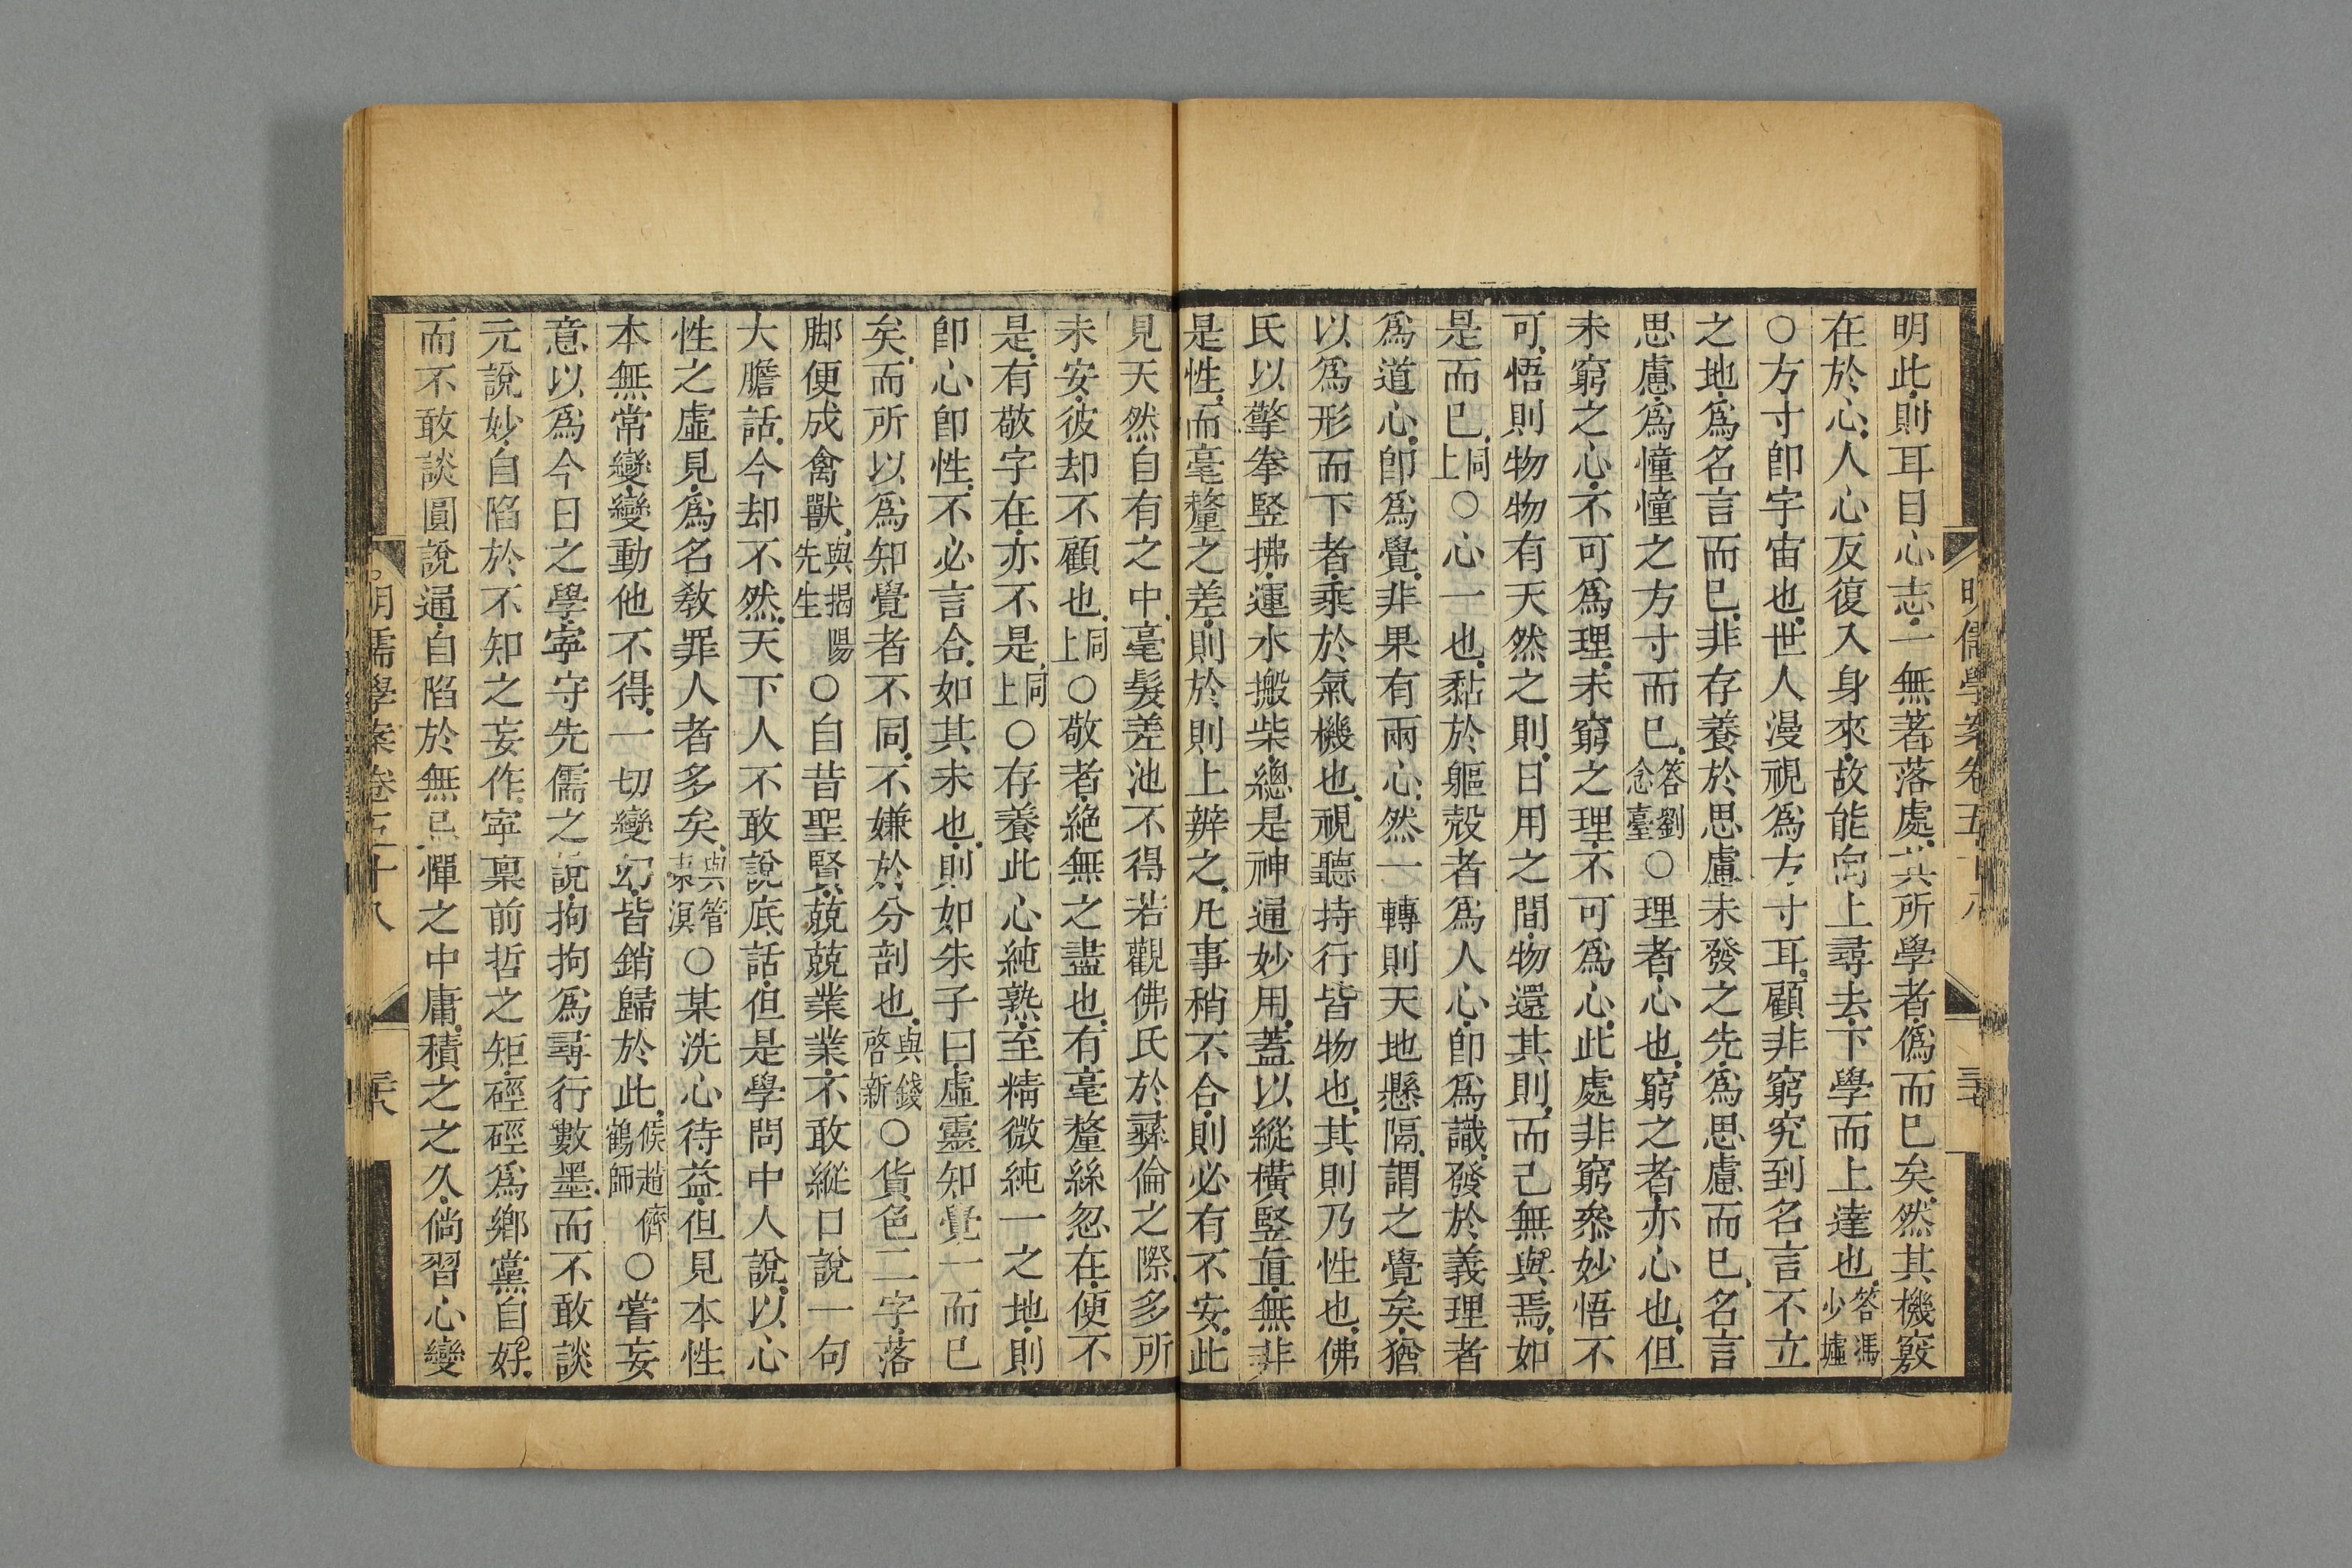 明此則耳目心志一無著落處其所學者僞而已矣然其機竅
在於心人心反復入身來故能向上尋去下學而上達也答馮少墟
○方寸卽宇宙也世人漫視爲方寸耳顧非窮究到名言不立
之地爲名言而已非存養於思慮未發之先爲思慮而已名言
思慮爲憧憧之方寸而已答劉念臺○理者心也窮之者亦心也但
未窮之心不可爲理未窮之理不可爲心此處非窮叅妙悟不
可悟則物物有天然之則日用之間物還其則而己無與焉如
是而已同上○心一也黏於軀殼者爲人心卽爲識發於義理者
爲道心卽爲覺非果有兩心然一轉則天地懸隔謂之覺矣猶
以爲形而下者乘於氣機也視聽持行皆物也其則乃性也佛
氏以擎拳竪拂運水搬柴總是神通妙用蓋以縱橫竪直無非
是性而毫釐之差則於則上辨之凡事稍不合則必有不安此
見天然自有之中毫髮差池不得若觀佛氏於彞倫之際多所
未安彼却不顧也同上○敬者絶無之盡也有毫釐絲忽在便不
是有敬字在亦不是同上○存養此心純熟至精微純一之地則
卽心卽性不必言合如其未也則如朱子曰虛靈知覺一而已
矣而所以爲知覺者不同不嫌於分剖也與錢啓新○貨色二字落
脚便成禽獸與揭陽先生○自昔聖賢兢兢業業不敢縱口說一句
大膽話今却不然天下人不敢說底話但是學問中人說以心
性之虛見爲名敎罪人者多矣與管東溟○某洗心待益但見本性
本無常變變動他不得一切變幻皆銷歸於此候趙儕鶴師○嘗妄
意以爲今日之學寧守先儒之說拘拘爲尋行數墨而不敢談
元說妙自陷於不知之妄作寧稟前哲之矩硜硜爲鄉黨自好
而不敢談圓說通自陷於無忌憚之中庸積之之久倘習心變
明儒學案卷五十八
三七
明儒學案卷五十八
三八